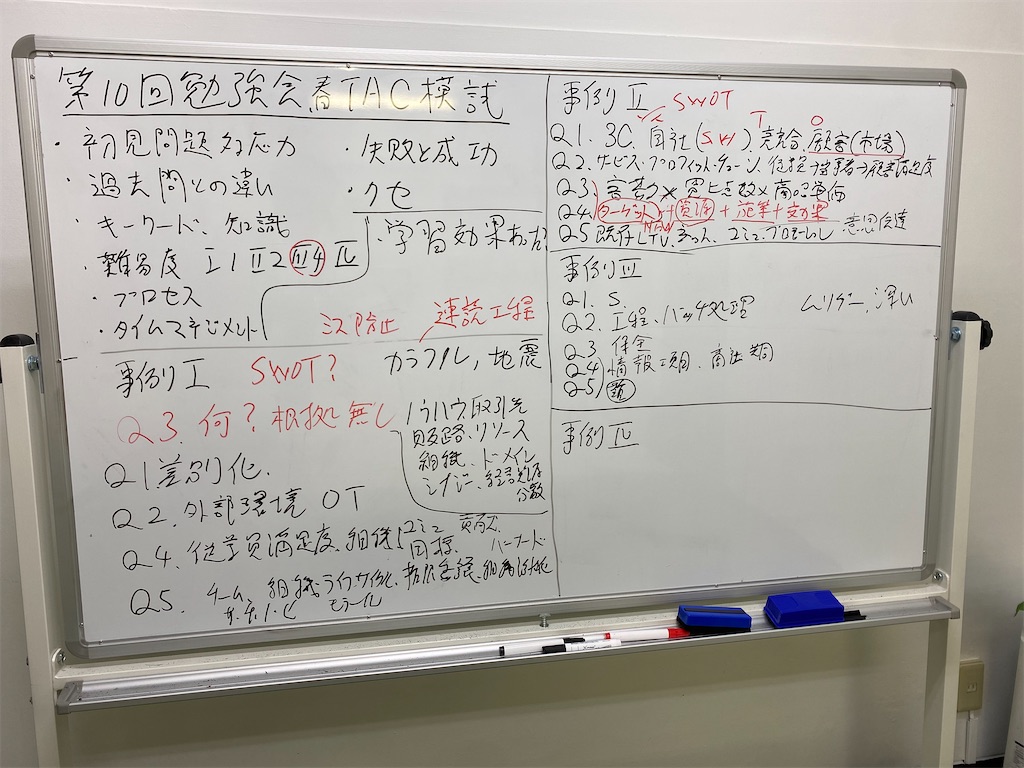 第10回勉強会春TAC模試
・初見問題対応力
・過去問との違い
・キーワード、知識
・難易度 Ⅰ1 Ⅱ2 Ⅲ4 Ⅳ
・プロセス
・タイムマネジメント
・失敗と成功
・クセ
・学習効果あったか
ミス防止
速読工程
事例Ⅰ SWOT?
カラフル, 地震
Q3. 何?根拠無し
ノウハウ、取引先
販路、リソース
組織、ドメイン
シナジー、経営
分散
Q1 差別化、
Q2. 外部環境 OT
Q4. 従業員満足度、組織 コミュ 貢献
目標、バーナード
Q5. チーム、組織ライフサイクル、
モラール
事例Ⅱ SWOT
T O
Q1. 3C、自社(SW)、競合、顧客(市場)
Q2. サービス・プロフィット・チェーン、従業→顧客満足度
Q3 客数×買上点数×商品単価
Q4 ターゲット+資源+施策+効果
Q5 既存LTV、コミュ、プロモーション 意思伝達
事例Ⅲ
Q1. S.
Q2. 工程、バッチ処理
Q3 保全
Q4 情報
Q5
ムリダナ、深い
事例Ⅳ